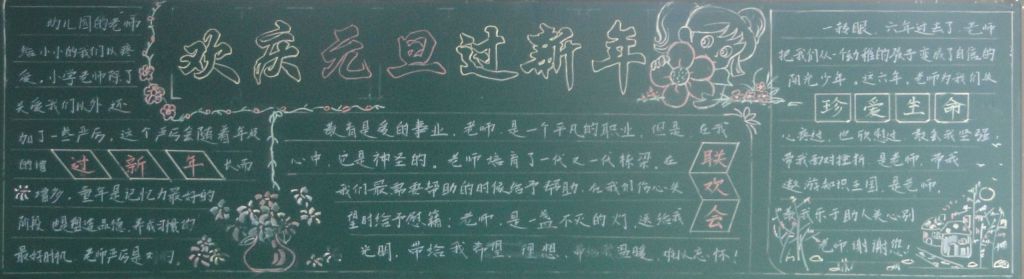 欢庆元旦过新年
幼儿园的老师
给小小的我们以疼
爱，小学老师除了
关爱我们以外还
加了一些严厉，这个严厉会随着年级
的增
过新年
长而
增多，童年是记忆力最好的
阶段 也是塑造品德、养成习惯的
最好时机，老师严厉是
教育是爱的事业，老师，是一个平凡的职业，但是，在我
心中，它是神圣的。老师培育了一代又一代栋梁，在
我们最需要帮助的时候给予帮助，在我们伤心失
望时给予慰藉；老师，是一盏不灭的灯，送给我
光明，带给我希望 理想，带给我温暖，
联欢会
一转眼，六年过去了，老师
把我们从一个幼稚的孩子变成了自信的
阳光少年，这六年，老师为我们
珍爱生命
心 过，也欣慰过，教会我坚强，
带我面对挫折 是老师，带我
遨游知识王国，是老师，
教我乐于助人关心别
老师 谢谢您